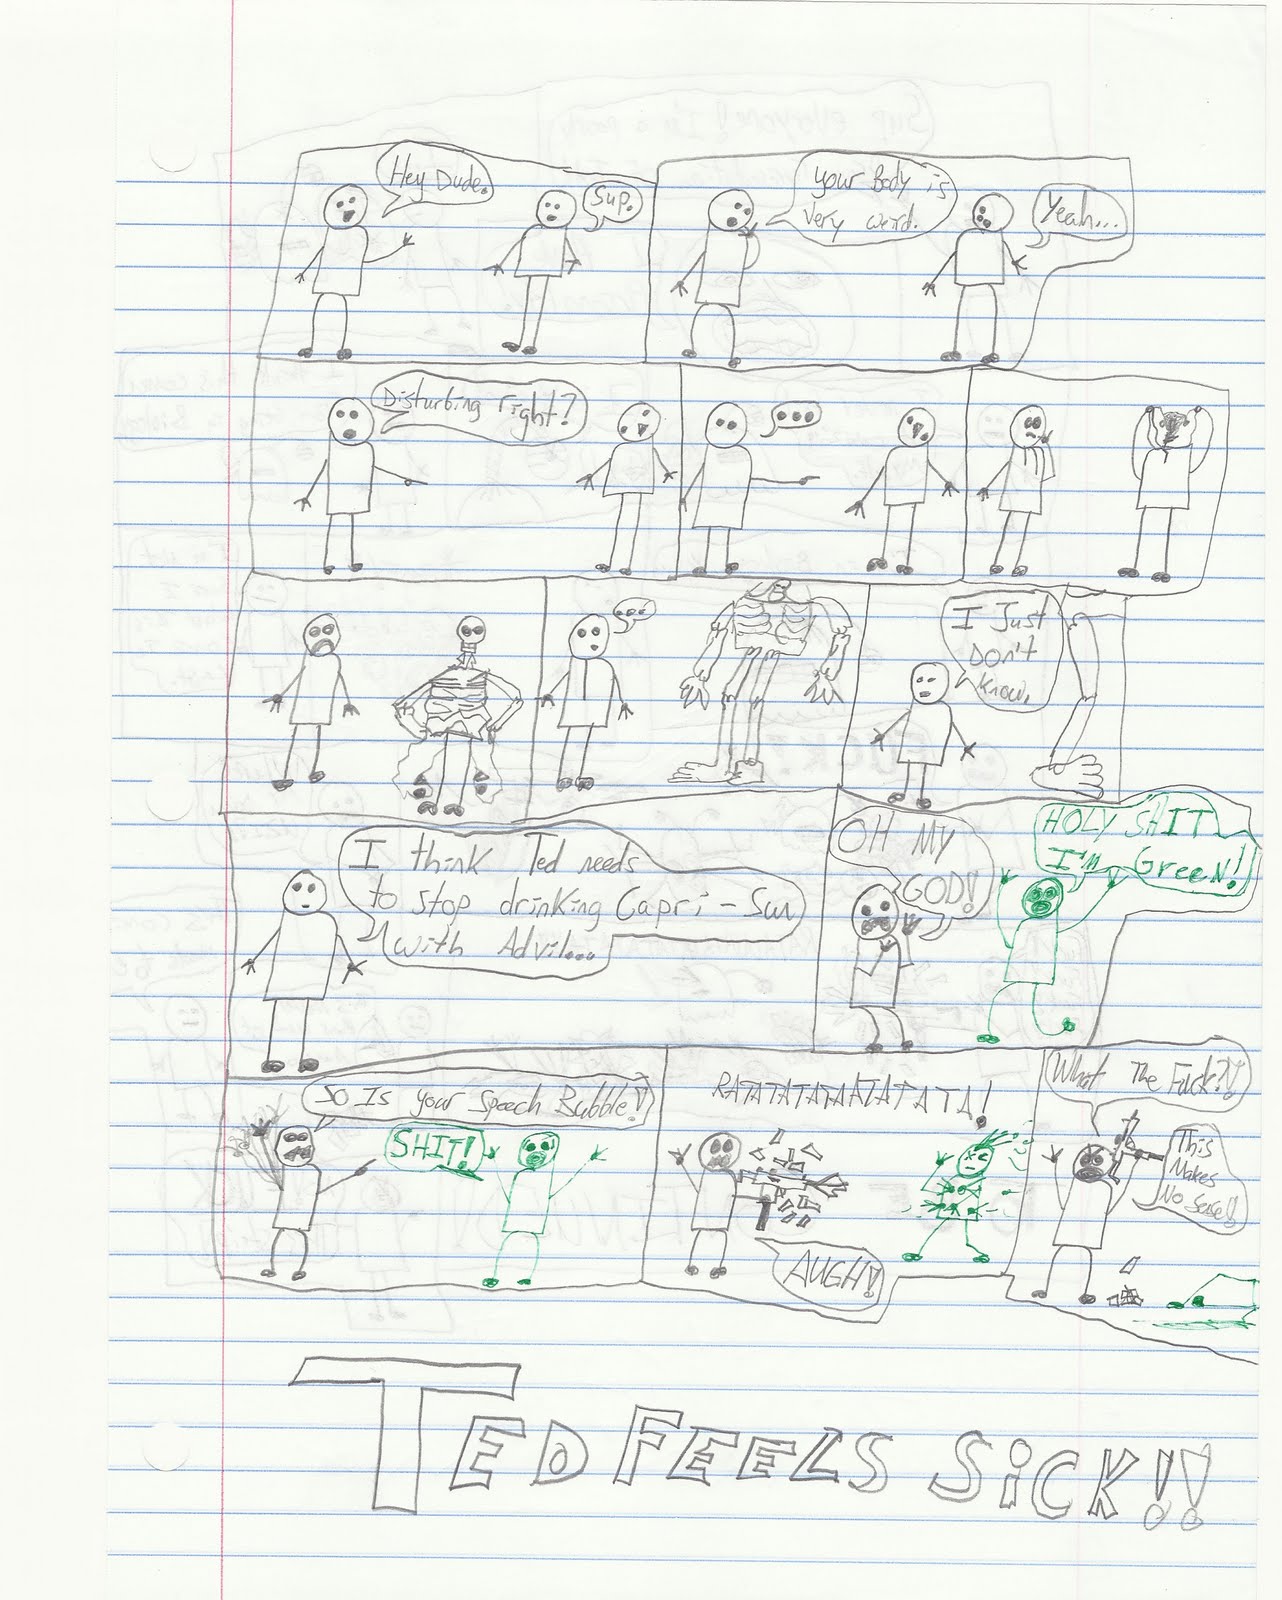 Hey Dude.
Sup.
your Body is
very weird.
Yeah...
Disturbing right?
...
...
I Just
Don't
Know.
I think Ted needs
to stop drinking Capri-Sun
with Advil....
OH MY
GOD!!
HOLY SHIT
I'm GreeN!
So Is your Speech Bubble!!
SHIT!
RATATATATAATATATA!
AUGH!!
What The Fuck?!!
This
Makes
No Sense!!
TED FEELS SiCK!!